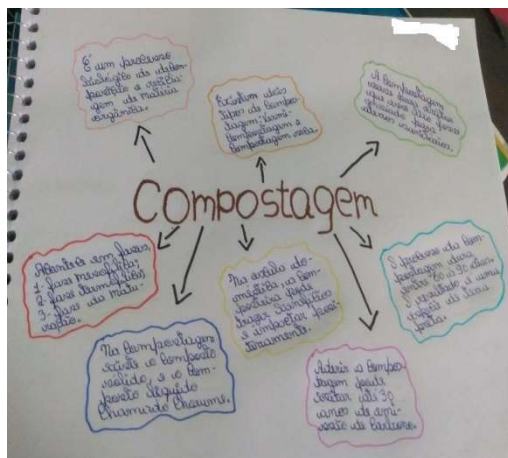 É um processo
biológico de decom-
posição e recicla-
gem da matéria
orgânica.
Existem dois
tipos de compo-
tagem: vermi-
compostagem e
compostagem seca.
A compostagem
para
que
Compostagem
Acontece em fases,
1- fase mesofílica;
2- fase termofílica;
3- fase da matu-
ração.
Na escala do-
méstica, na com-
posteira pode
e
O processo da com-
postagem dura
entre 60 a 90 dias,
o resultado é uma
espécie de terra
preta.
Na compostagem
existe o composto
sólido, e o com-
posto líquido
chamado chorume.
Aderir a compos-
tagem pode
evitar até 30
anos de emi-
ssão de carbono.